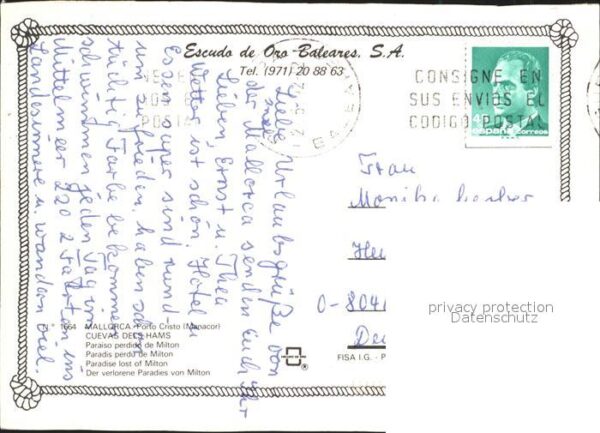 Escudo de Oro-Baleares, S.A.
Tel. (971) 20 88 63
CONSIGNE EN
SUS ENVIOS EL
CODIGO POSTAL
españa correos
Liebe Urlaubsgrüße von
der Mallorca senden Euch Ihr
Lieben, Ernst u. Thea
Wetter ist schön. Hotel u.
Essen super sind rund-
um zufrieden, haben schon
tüchtig Farbe bekommen
schwimmen jeden Tag im
Mittelmeer 22° 2 Fahrten ins
Landesinnere u. wandern viel.
Frau
Monika
O-804
privacy protection
Datenschutz
1664 MALLORCA Porto Cristo (Manacor)
CUEVAS DELS HAMS
Paraiso perdido de Milton
Paradis perdu de Milton
Paradise lost of Milton
Der verlorene Paradies von Milton
FISA I.G. - P